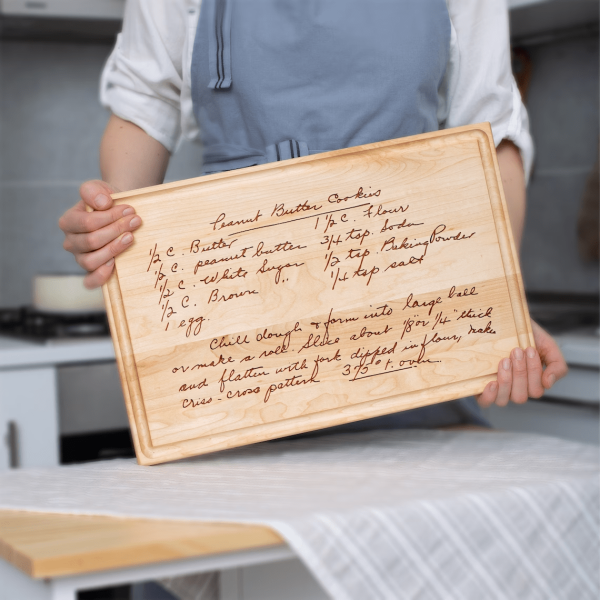 Peanut Butter Cookies
1/2 C. Butter
1/2 C. peanut butter
1/2 C. White Sugar
1/2 C. Brown " 
1 egg.
1 1/2 C. Flour
3/4 tsp. Soda
1/2 tsp. Baking Powder
1/4 tsp salt
Chill dough & form into large ball
or make a roll. Slice about 1/8" or 1/4" thick
and flatten with fork dipped in flour, make
criss-cross pattern 375° F. oven